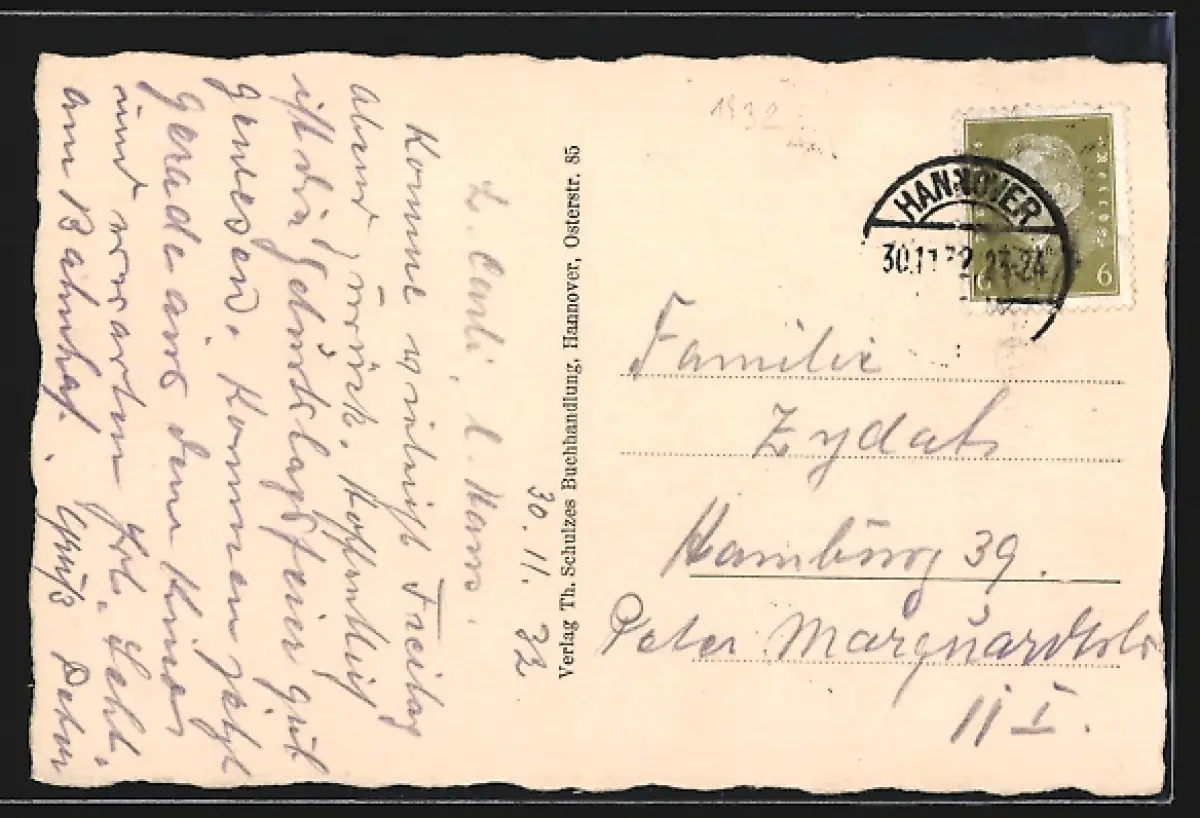 30.11.32
L. Centi, l. Hans.
Komme vielleicht Freitag
abend zurück. Hoffentlich
ist die Geburtstagsfeier gut
gewesen. Kommen jetzt
gerade aus dem Kino
und erwarten Frl.
am Bahnhof. Gruß Peter
Verlag Th. Schulzes Buchhandlung, Hannover, Osterstr. 85
1932
HANNOVER
30.11.32 23-24
6 6
Familie
Zydat
Hamburg 39.
Peter Marquardtstr
11 I.